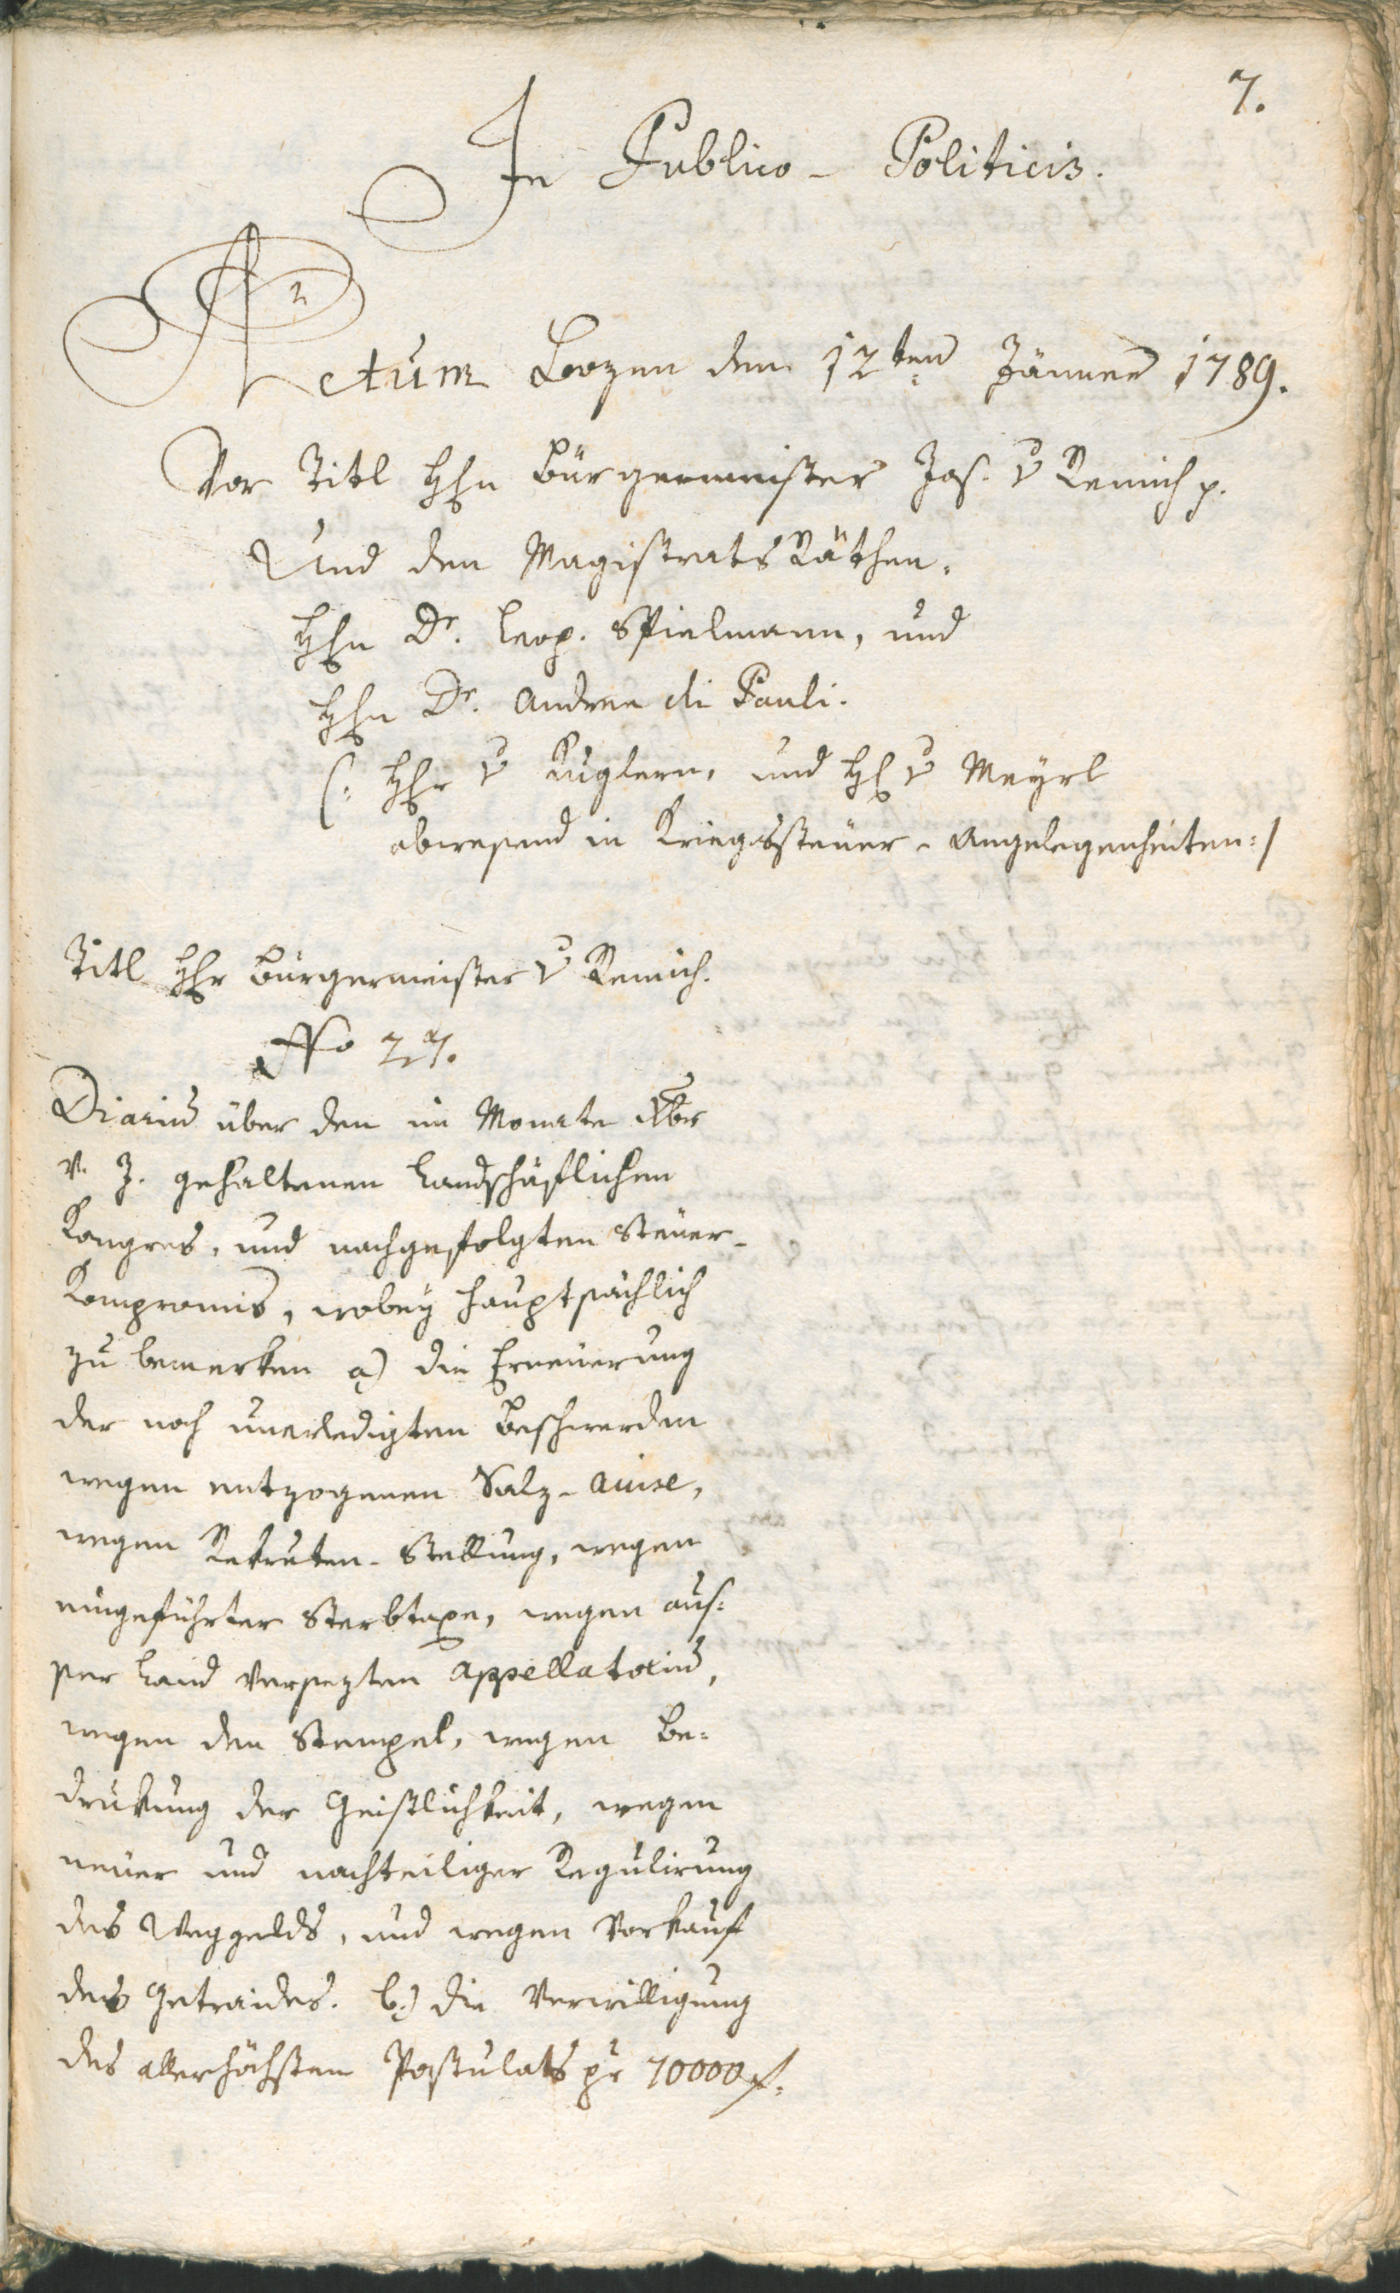 7.
In Publico - Politicis.
2
Actum Bozen den 12ten Jänner 1789.
Vor Titl Hhn Bürgermeister Jos. v Remich p.
Und den Magistrats Räthen.
Hhn Dr. Leop. Spielmann, und
Hhn Dr. Andree di Pauli.
(: Hhr v Kuglern, und Hh v Meyrl
abwesend in Kriegssteuer-Angelegenheiten:/
Titl Hhr Bürgermeister v Remich.
No 27.
Diariu über den im Monate Xbr
v. J. gehaltenen Landschäftlichen
Kongres, und nachgefolgten Steuer-
Kompromis, wobey hauptsächlich
zu bemerken a) die Erneuerung
der noch unerledigten Beschwerden
wegen entzogenen Salz-Auise,
wegen Rekruten-Stellung, wegen
eingeführter Sterbtaxe, wegen aus:
ser Land versezten Appellatoriu,
wegen den Stempel, wegen Be:
drukung der Geistlichkeit, wegen
neuer und nachteiliger Regulirung
des Weggelds, und wegen Vorkauf
des Getraides. b.) die Verwilligung
des allerhöchsten Postulats pr 70000 f.